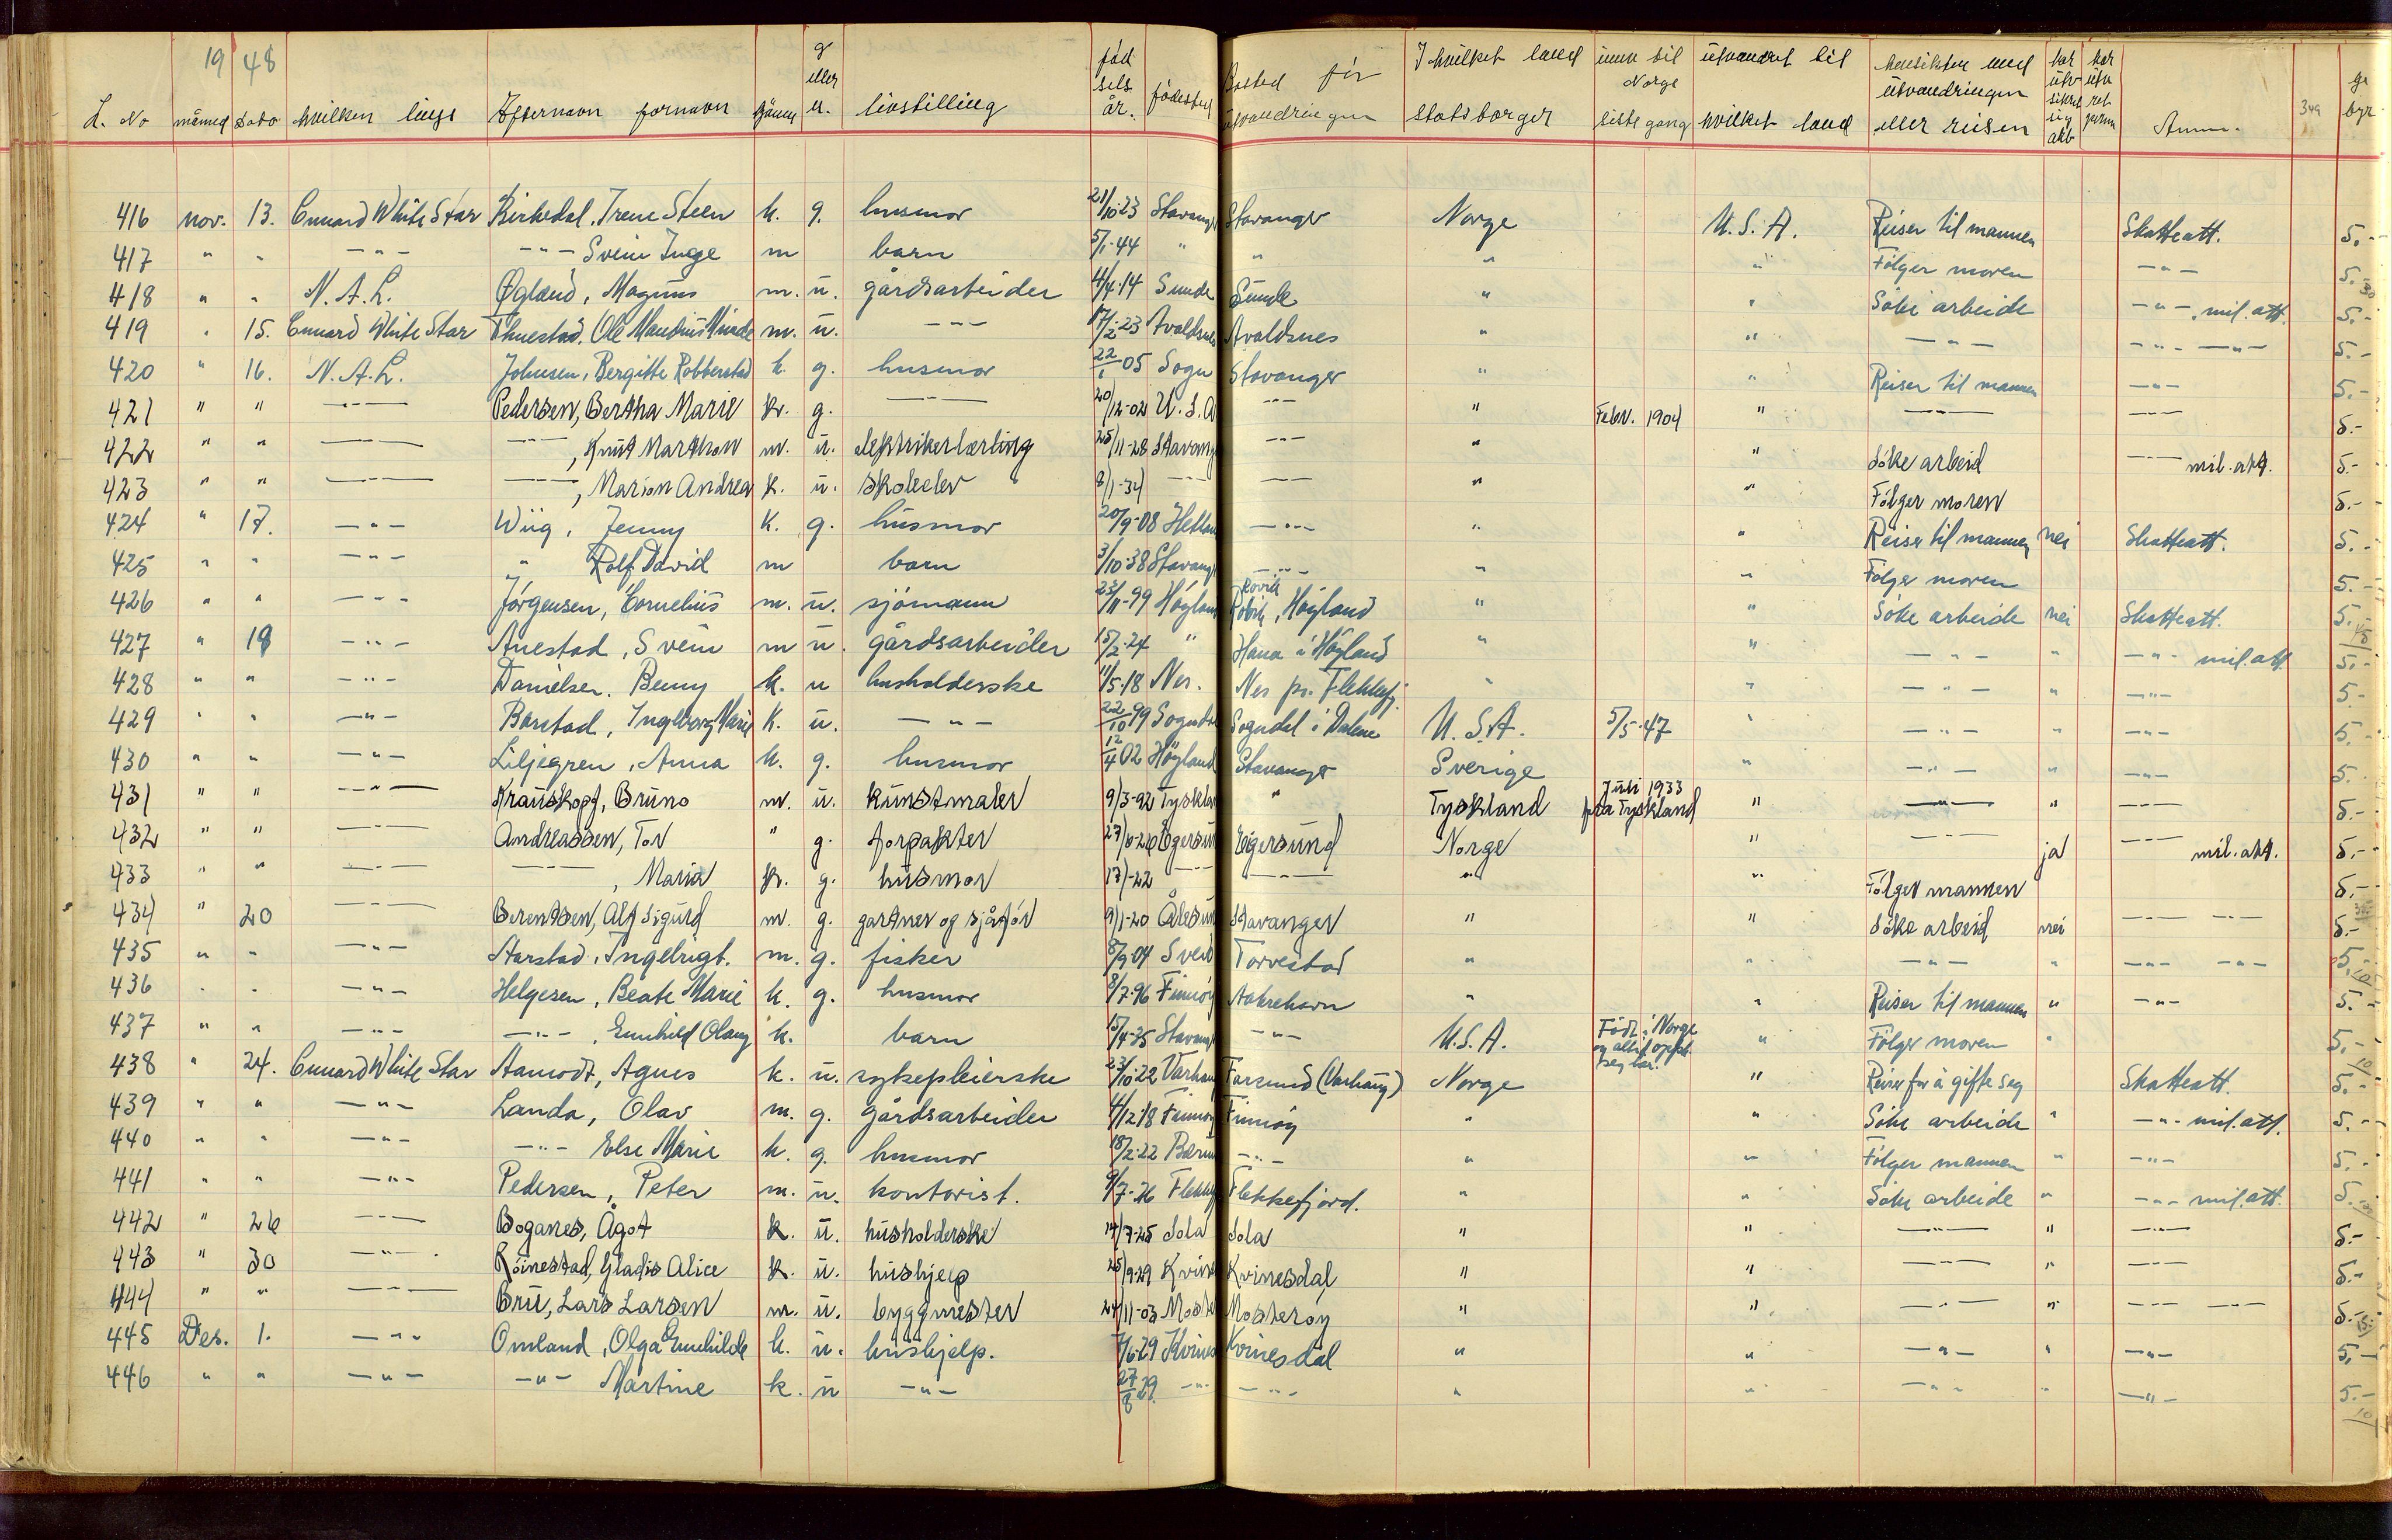 19 48
L. No måned Dato hvilken linje Efternavn fornavn kjønn g eller u. livstilling fød sels år. fødested Bosted før utvandringen I hvilket land statsborger innv til Norge siste gang utvandret til hvilket land Hensikten med utvandringen eller reisen har utv sikret sig arb har utv ret Anm. 349 ge byr
416 nov. 13. Cunard White Star Birkedal, Irene Steen k. g. husmor 21/10-23 Stavanger Stavanger Norge U.S.A. Reiser til mannen Skatteatt. 5.-
417 " " -"- -"- Svein Inge m barn 5/1-44 " " " " Følger moren -"- 5.-
418 " " N.A.L. Øgland, Magnus m. u. gårdsarbeider 4/4-14 Sunde Sunde " " Søke arbeide -"- mil.att. 5.-
419 " 15. Cunard White Star Thuestad, Ole Mandius m. u. -"- 17/2-23 Avaldsnes Avaldsnes " " -"- -"- -"- 5.-
420 " 16. N.A.L. Johnsen, Bergitte Robberstad k. g. husmor 22/1 05 Sogn Stavanger " " Reiser til mannen -"- 5.-
421 " " -"- Pedersen, Bertha Marie k. g. -"- 20/12-02 U.S.A -"- " Febr. 1904 " -"- -"- 5.-
422 " " -"- -"-, Knut Marthon m. u. elektrikerlærling 25/11-28 Stavang -"- " " Søke arbeid -"- mil.att. 5.-
423 " " -"- -"-, Marion Andrea k. u. skoleelev 8/1-34 -"- -"- " " Følger moren 5.-
424 " 17. -"- Wiig, Jenny k. g. husmor 20/9-08 Hetland -"- " " Reiser til mannen nei Skatteatt. 5.-
425 " " -"- " Rolf David m barn 3/10-38 Stavang -"- " " Følger moren 5.-
426 " " -"- Jørgensen, Cornelius m. u. sjømann 23/11-99 Høyland Rovik, Høyland " " Søke arbeide nei Skatteatt. 5.-
427 " 18 -"- Anestad, Svein m u. gårdsarbeider 15/2-24 " Hana i Høyland " " -"- " -"- mil.att. 5.-
428 " " -"- Danielsen, Benny k. u husholderske 11/5-18 Nes. Nes pr. Flekkefj. " " -"- " -"- 5.-
429 " " -"- Barstad, Ingeborg Marie k. u. -"- 22/10 99 Sogndal Sogndal i Dalane U.S.A. 5/5-47 " -"- " -"- 5.-
430 " " -"- Liljegren, Anna k. g. husmor 12/4 02 Høyland Stavanger Sverige " -"- " -"- 5.-
431 " " -"- Krauskopf, Bruno m. u. kunstmaler 9/3-92 Tyskland " Tyskland Juli 1933 fra Tyskland " -"- " -"- 5.-
432 " " -"- Andreassen, Tor " g. forpakter 27/6-26 Egersun Egersund Norge " -"- ja -"- mil.att. 5.-
433 " " -"- -"-, Maria k. g. husmor -22 -"- -"- " " Følger mannen 5.-
434 " 20 -"- Berentsen, Alf Sigurd m. g. gartner og sjåfør 9/1-20 Ålesun Stavanger " " Søke arbeid nei -"- -"- 5.-
435 " " -"- Aarstad, Ingebrigt. m. g. fisker 8/9-04 Svei Torvestad " " -"- " -"- -"- 5.-
436 " " -"- Helgesen, Beate Marie k. g. husmor 8/7-96 Finnøy Aakrehavn " " Reiser til mannen " -"- 5.-
437 " " -"- -"-, Gunhild Olaug k. barn 15/4-35 Stavang -"- U.S.A. Født i Norge og alltid opph. seg her. " Følger moren " 5.-
438 " 24. Cunard White Star Aamodt, Agnes k. u. sykepleierske 23/10-22 Varhaug Farsund (Varhaug) Norge " Reiser for å gifte seg Skatteatt. 5.-
439 " " -"- Landa, Olav m. g. gårdsarbeider 4/12-18 Finnøy Finnøy " " Søke arbeide " -"- mil.att. 5.-
440 " " -"- -"- Else Marie k. g. husmor 18/2-22 Bærum -"- " " Følger mannen " -"- 5.-
441 " " -"- Pedersen, Peter m. u. kontorist. 9/7-26 Flekkef Flekkefjord. " " Søke arbeide " -"- mil.att. 5.-
442 " 26 -"- Boganes, Ågot k. u. husholderske 14/7-25 Sola Sola " " -"- " -"- 5.-
443 " 30 -"- Röinestad, Gladis Alice k. u. hushjelp 25/9-29 Kvines Kvinesdal " " -"- " -"- 5.-
444 " " -"- Bru, Lars Larsen m. u. byggmester 24/11-03 Moster Mosterøy " " -"- " -"- -"- 5.-
445 Des. 1. -"- Omland, Olga Gunhilde k. u. hushjelp. 7/6-29 Kvines Kvinesdal " " -"- " -"- 5.-
446 " " -"- -"- Martine k. u -"- 27/8 29. -"- -"- " " -"- " -"- 5.-